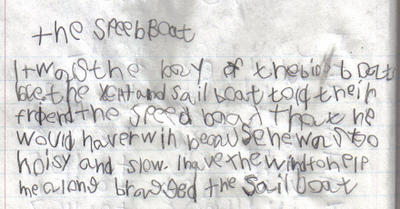 the SPeebBoat
It was the bay of the big boat
the YCHT and Sail boat told their
friend the speed boat that he
would haver win because he was too
noisy and slow. I have the wind to help
me along bragged the Sail boat